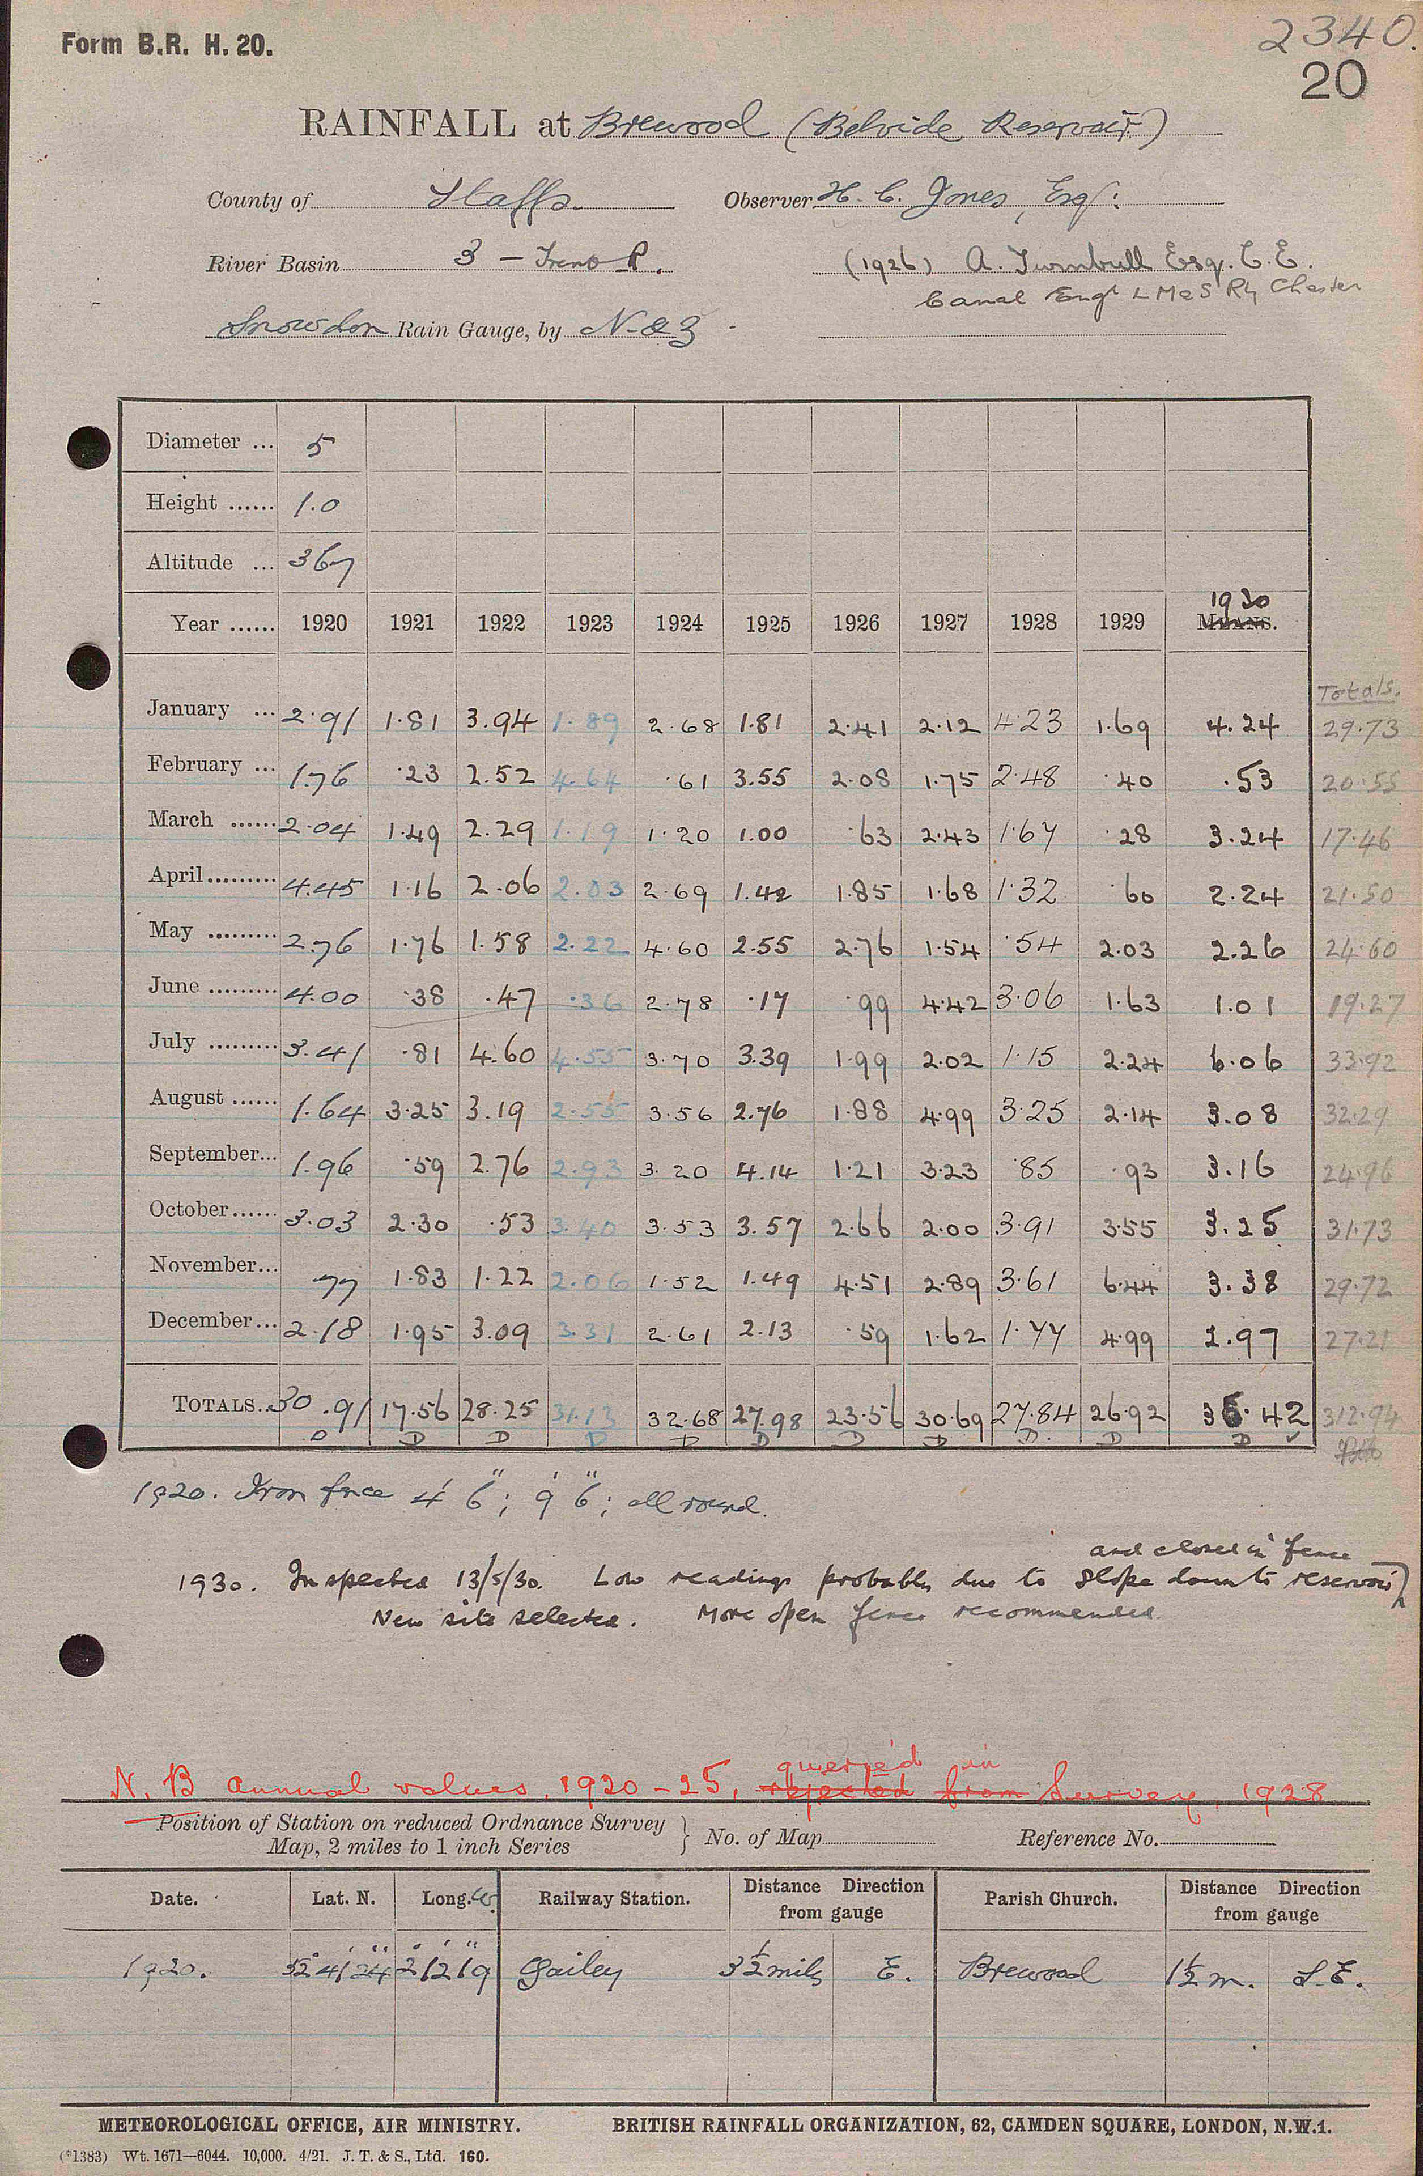 Form B.R. H. 20.
2340.
20
RAINFALL at Brewood (Belvide Reservoir)
County of Staffs. Observer H. C. Jones, Esq:
River Basin 3 — Trent R. (1926) A. Turnbull Esq. C.E.
Canal Engr L M & S Rly Chester
Snowdon Rain Gauge, by N & Z.
Diameter ... 5
Height ...... 1.0
Altitude ... 367
1930
Year ...... 1920 1921 1922 1923 1924 1925 1926 1927 1928 1929 MEANS.
Totals.
January ... 2.91 1.81 3.94 1.89 2.68 1.81 2.41 2.12 4.23 1.69 4.24 29.73
February ... 1.76 .23 2.52 4.64 .61 3.55 2.08 1.75 2.48 .40 .53 20.55
March ...... 2.04 1.49 2.29 1.19 1.20 1.00 .63 2.43 1.67 .28 3.24 17.46
April ......... 4.45 1.16 2.06 2.03 2.69 1.42 1.85 1.68 1.32 .60 2.24 21.50
May ......... 2.76 1.76 1.58 2.22 4.60 2.55 2.76 1.54 .54 2.03 2.26 24.60
June ......... 4.00 .38 .47 .36 2.78 .17 .99 4.42 3.06 1.63 1.01 19.27
July ......... 3.41 .81 4.60 4.55 3.70 3.39 1.99 2.02 1.15 2.24 6.06 33.92
August ...... 1.64 3.25 3.19 2.55 3.56 2.76 1.88 4.99 3.25 2.14 3.08 32.29
September... 1.96 .59 2.76 2.93 3.20 4.14 1.21 3.23 .85 .93 3.16 24.96
October ...... 3.03 2.30 .53 3.40 3.53 3.57 2.66 2.00 3.91 3.55 3.25 31.73
November... .77 1.83 1.22 2.06 1.52 1.49 4.51 2.89 3.61 6.44 3.38 29.72
December... 2.18 1.95 3.09 3.31 2.61 2.13 .59 1.62 1.77 4.99 2.97 27.21
TOTALS... 30.91 17.56 28.25 31.13 32.68 27.98 23.56 30.69 27.84 26.92 35.42 312.94
D D D D D D D D D. D D ✓
1920. Iron fence 4' 6"; 9' 6"; all round.
and closed in fence
1930. Inspected 13/5/30. Low readings probably due to slope down to reservoir
New site selected. More open fence recommended
queried in
N.B annual values, 1920–25, rejected from Survey, 1928
Position of Station on reduced Ordnance Survey Map, 2 miles to 1 inch Series } No. of Map Reference No.
Date. Lat. N. Long. W. Railway Station. Distance Direction from gauge Parish Church. Distance Direction from gauge
1920. 52° 41' 24" 2° 12' 19" Gailey 3½ mils E. Brewood 1½ m. S.E.
METEOROLOGICAL OFFICE, AIR MINISTRY. BRITISH RAINFALL ORGANIZATION, 62, CAMDEN SQUARE, LONDON, N.W.1.
(*1383) Wt. 1671—6044. 10,000. 4/21. J. T. & S., Ltd. 160.